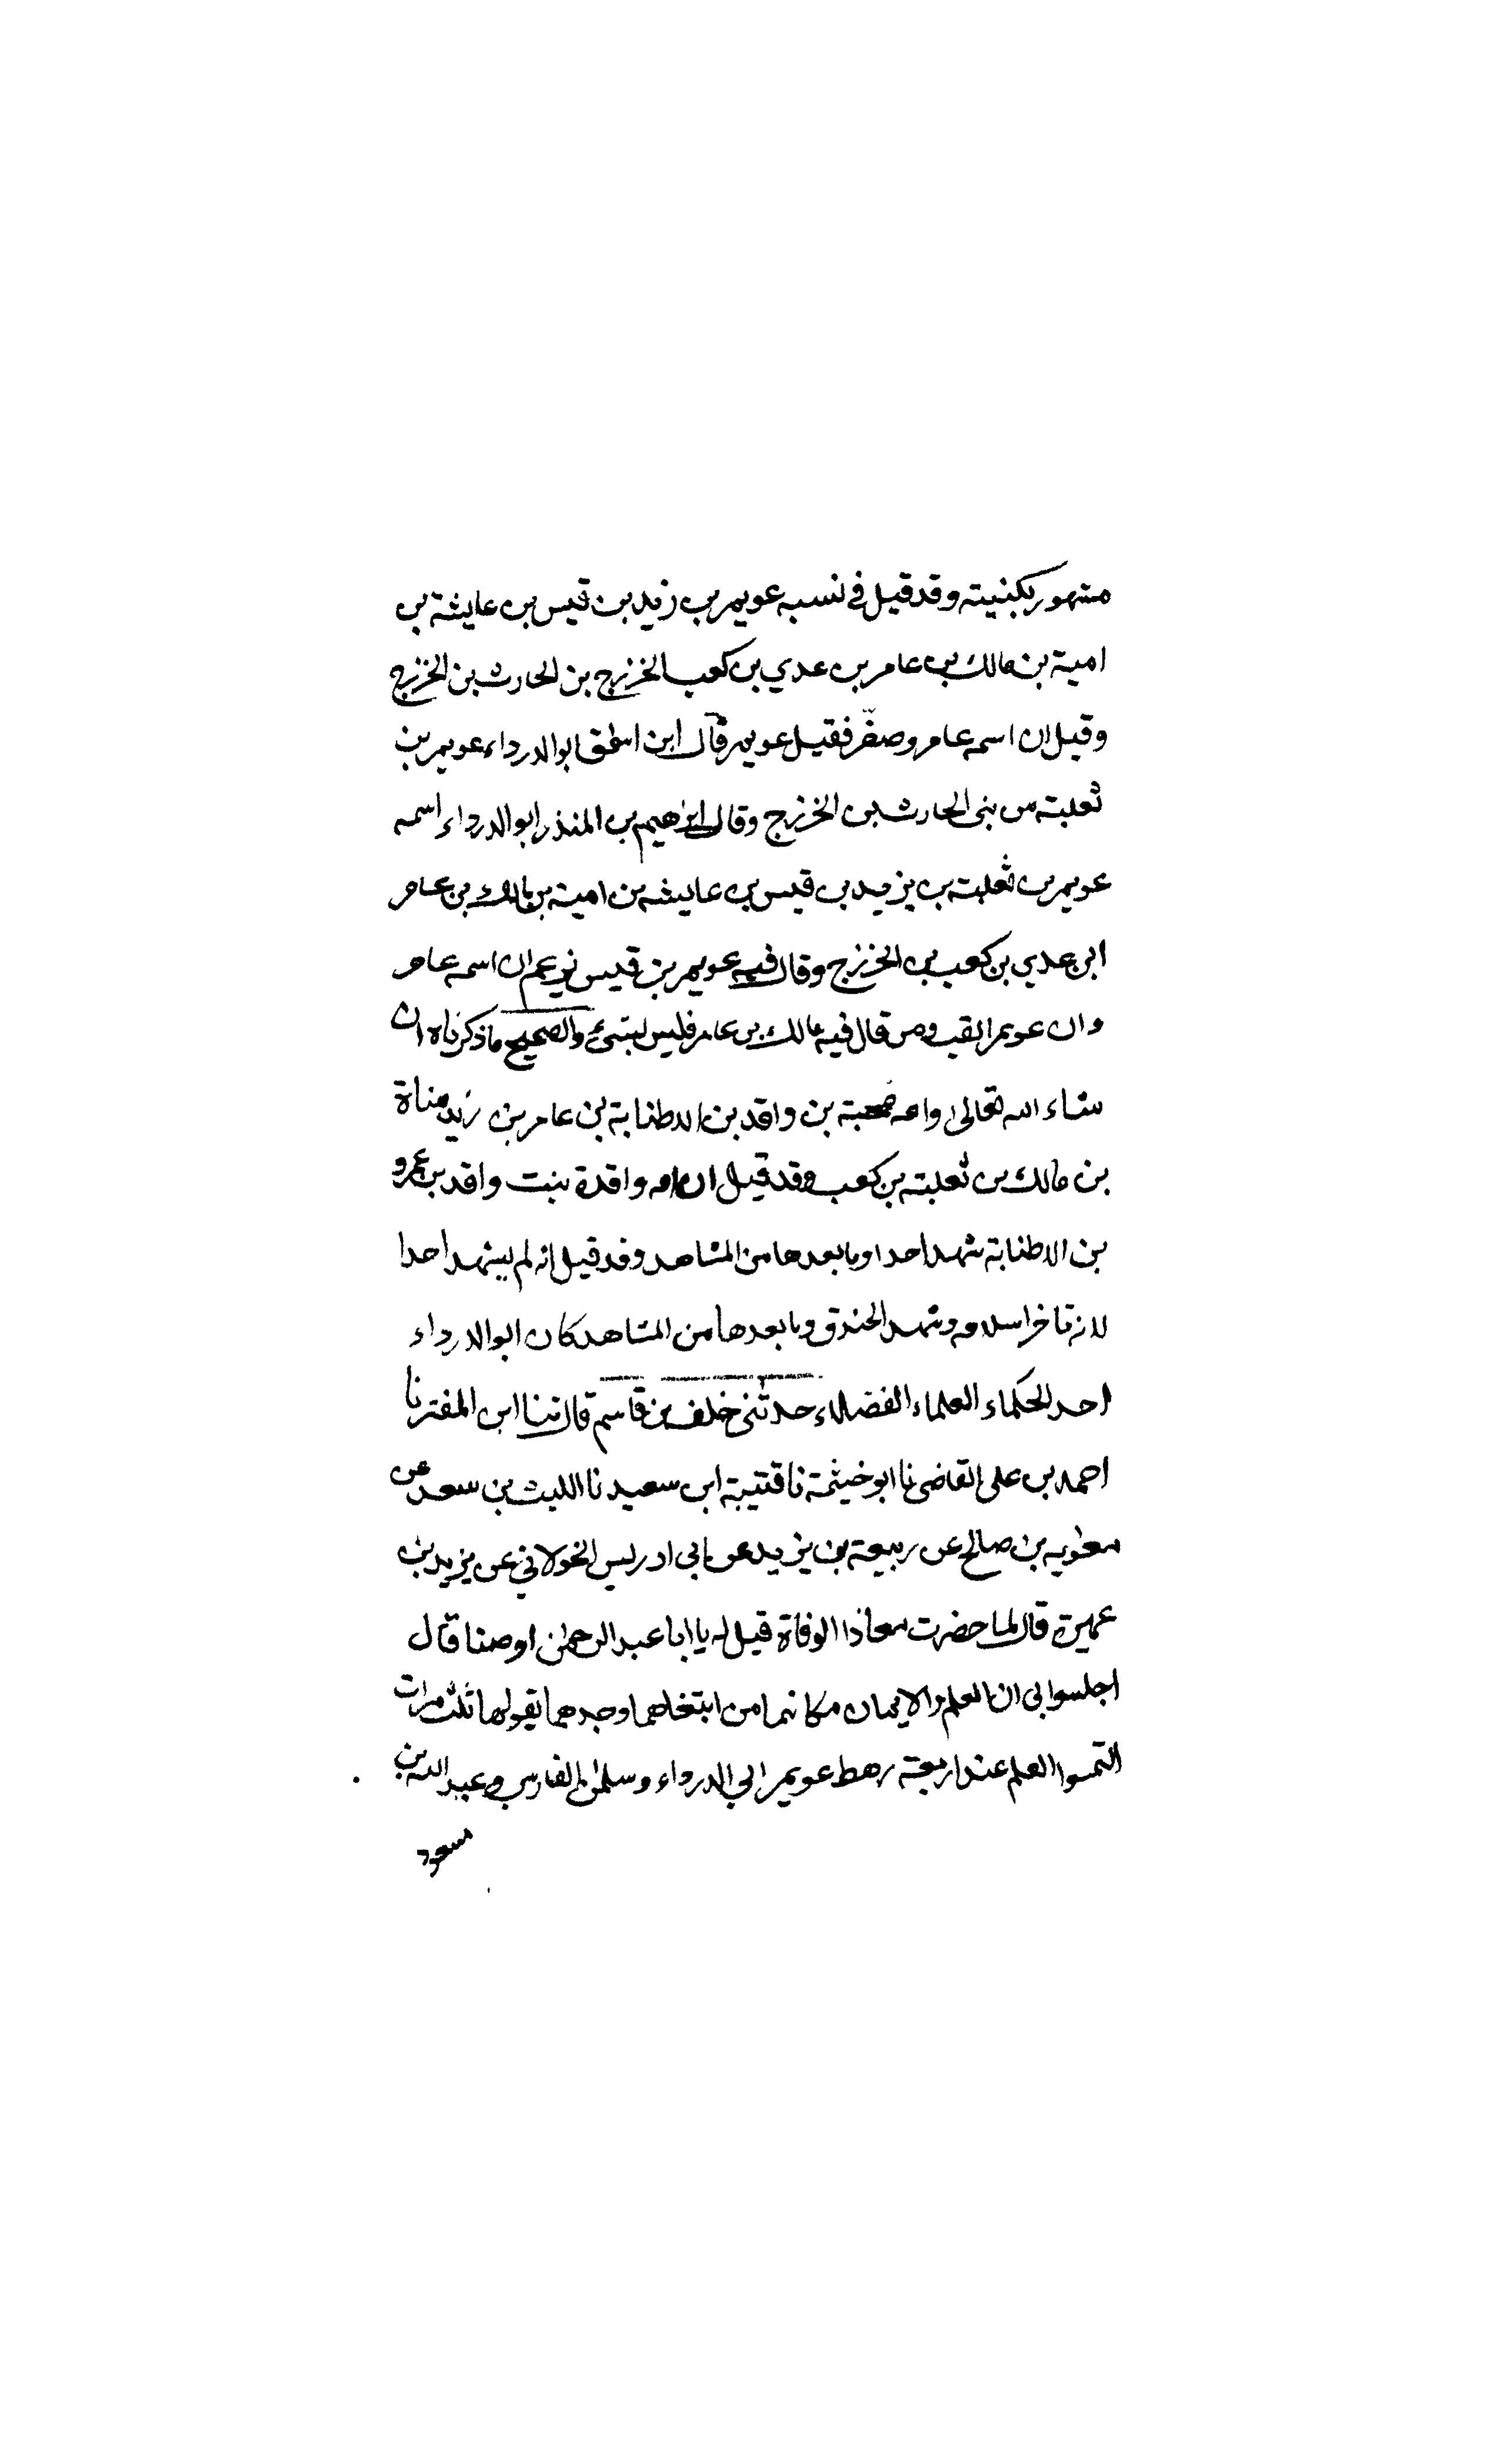 مشهور بكنيته وقد قيل في نسبه عويمر بن زيد بن قيس بن عايشة بن
امية بن مالك بن عامر بن عدي بن كعب الخزرج بن الحارث بن الخزرج
وقيل ان اسمه عامر وصغّر فقيل عويمر قال ابن اسحق ابو الدرداء عويمر بن
ثعلبة من بنى الحارث بن الخزرج وقال ابرٰهيم بن المنذر ابو الدرداء اسمه
عويمر بن ثعلبة بن يزيد بن قيس بن عايشه بن امية بن مالك بن عامر
ابن عدي بن كعب بن الخزرج وقال فيه عويمر بن قيس يزعم ان اسمه عامر
وان عويمر القب ومن قال فيه مالك بن عامر فليس بشيء والصحيح ماذكرناه ان
شاء الله تعالى وامه محبة بن واقد بن الاطنابة بن عامر بن زيد مناة
بن مالك بن ثعلبة بن كعب وقد قيل ان امه واقدة بنت واقد بن عمرو
بن الاطنابة شهد احدا وما بعدها من المشاهد وقد قيل انه لم يشهد احدا
لانه تاخر اسلامه وشهد الخندق وما بعدها من المشاهد كان ابو الدرداء
احد الحكماء العلماء الفضلاء حدثنى خلف بن قاسم قال ثنا ابن المفسر نا
احمد بن على القاضى نا ابو خيثمة نا قتيبة ابن سعيد نا الليث بن سعد عن
معٰويه بن صالح عن ربيعة بن يزيد عن ابى ادريس الخولاني عن يزيد بن
عميرة قال لما حضرت معاذا الوفاة قيل له يا ابا عبد الرحمٰن اوصنا قال
اجلسوا بى ان العلم والايمان مكانهما من ابتغاهما وجدهما يقولها ثلث مرات
التمسوا العلم عند اربعة رهط عويمر ابي الدرداء وسلمٰن الفارسي وعبد الله بن
مسعود